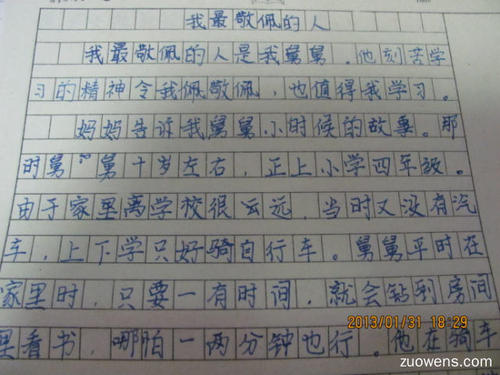 我最敬佩的人
我最敬佩的人是我舅舅。他刻苦学
习的精神令我佩敬佩,也值得我学习。
妈妈告诉我舅舅小时候的故事。那
时舅舅十岁左右,正上小学四年级。
由于家里离学校很远,当时又没有汽
车,上下学只好骑自行车。舅舅平时在
家里时,只要一有时间,就会钻到房间
里看书,哪怕一两分钟也行。他在骑车
2013/01/31 18:29
zuowens.com